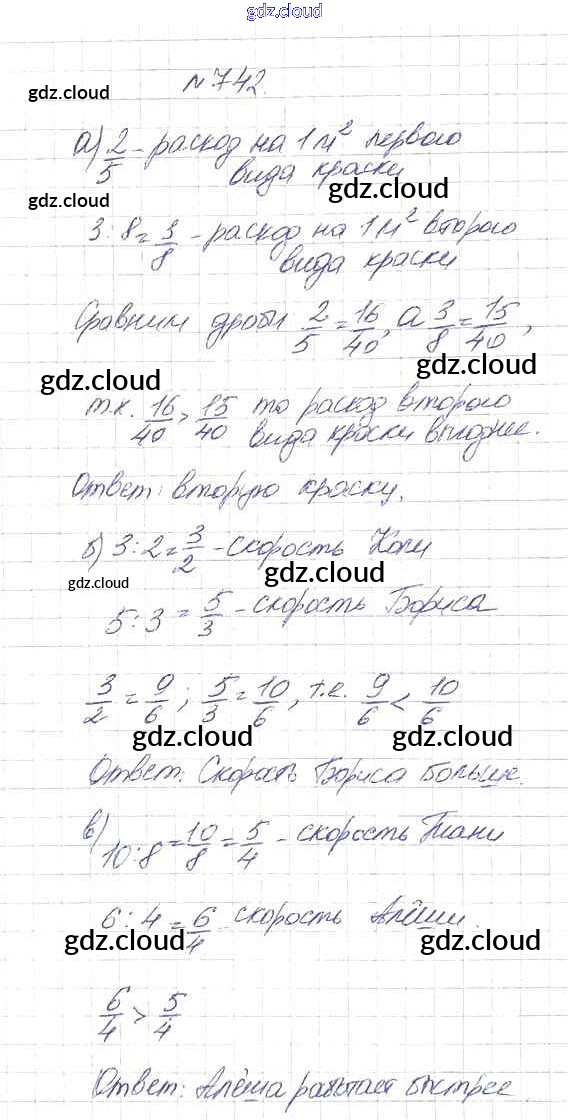 gdz.cloud
gdz.cloud
№742.
а) 2/5 - расход на 1 м² первого
вида краски
gdz.cloud
gdz.cloud
3:8=3/8 - расход на 1 м² второго
вида краски
Сравним дроби 2/5=16/40, а 3/8=15/40,
gdz.cloud
gdz.cloud
т.к. 16/40>15/40 то расход второго
вида краски выгоднее.
Ответ: вторую краску.
б) 3:2=3/2 - скорость Коли
gdz.cloud
gdz.cloud
5:3=5/3 - скорость Бориса
3/2=9/6; 5/3=10/6, т.е. 9/6<10/6
gdz.cloud
gdz.cloud
Ответ: Скорость Бориса больше.
в) 10:8=10/8=5/4 - скорость Тани
6:4=6/4 скорость Алёши.
gdz.cloud
gdz.cloud
6/4>5/4
Ответ: Алёша работает быстрее
gdz.cloud